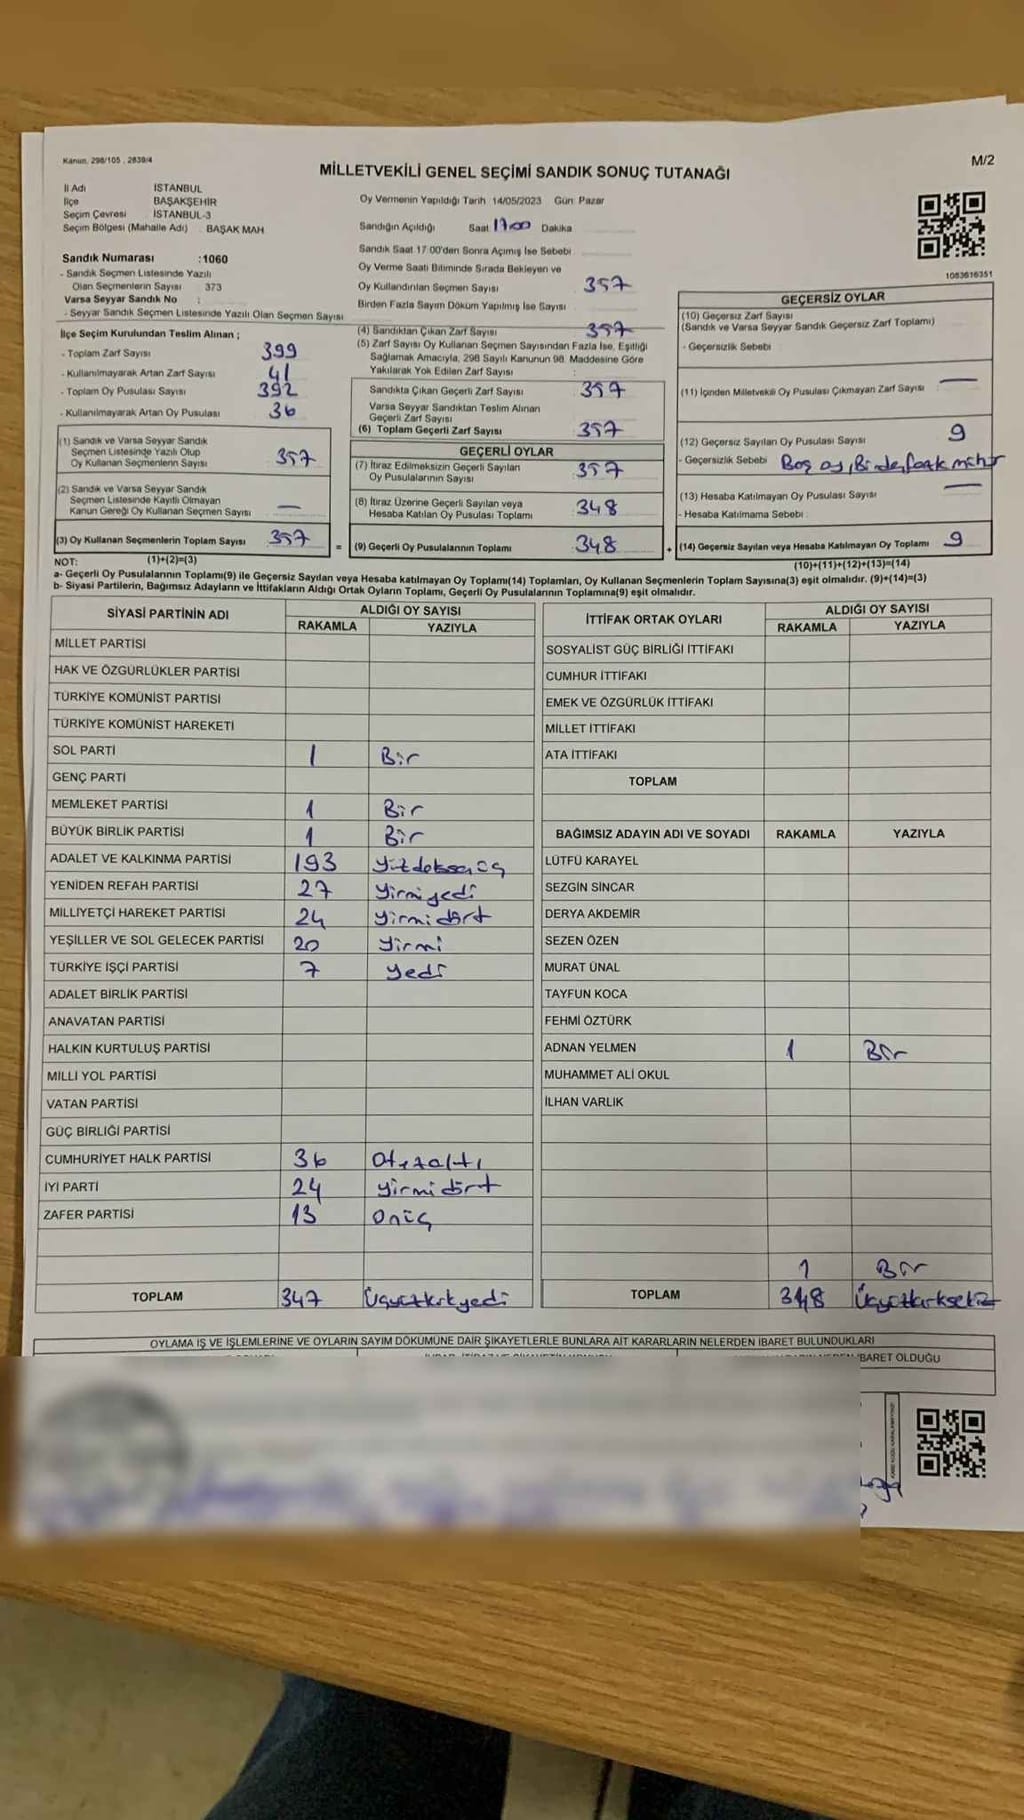 Kanun, 298/105 , 2839/4
M/2
MİLLETVEKİLİ GENEL SEÇİMİ SANDIK SONUÇ TUTANAĞI
İl Adı İSTANBUL
İlçe BAŞAKŞEHİR
Seçim Çevresi İSTANBUL-3
Seçim Bölgesi (Mahalle Adı) BAŞAK MAH
Sandık Numarası :1060
- Sandık Seçmen Listesinde Yazılı
Olan Seçmenlerin Sayısı 373
Varsa Seyyar Sandık No :
- Seyyar Sandık Seçmen Listesinde Yazılı Olan Seçmen Sayısı
Oy Vermenin Yapıldığı Tarih 14/05/2023 Gün Pazar
Sandığın Açıldığı Saat 17:00 Dakika
Sandık Saat 17:00'den Sonra Açılmış İse Sebebi
Oy Verme Saati Bitiminde Sırada Bekleyen ve
Oy Kullandırılan Seçmen Sayısı 357
Birden Fazla Sayım Döküm Yapılmış İse Sayısı
1083616351
İlçe Seçim Kurulundan Teslim Alınan ;
- Toplam Zarf Sayısı 399
- Kullanılmayarak Artan Zarf Sayısı 41
- Toplam Oy Pusulası Sayısı 392
- Kullanılmayarak Artan Oy Pusulası 36
(1) Sandık ve Varsa Seyyar Sandık
Seçmen Listesinde Yazılı Olup
Oy Kullanan Seçmenlerin Sayısı 357
(2) Sandık ve Varsa Seyyar Sandık
Seçmen Listesinde Kayıtlı Olmayan
Kanun Gereği Oy Kullanan Seçmen Sayısı —
(3) Oy Kullanan Seçmenlerin Toplam Sayısı 357
(1)+(2)=(3)
(4) Sandıktan Çıkan Zarf Sayısı 357
(5) Zarf Sayısı Oy Kullanan Seçmen Sayısından Fazla İse, Eşitliği
Sağlamak Amacıyla, 298 Sayılı Kanunun 98. Maddesine Göre
Yakılarak Yok Edilen Zarf Sayısı :
Sandıkta Çıkan Geçerli Zarf Sayısı 357
Varsa Seyyar Sandıktan Teslim Alınan
Geçerli Zarf Sayısı
(6) Toplam Geçerli Zarf Sayısı 357
GEÇERLİ OYLAR
(7) İtiraz Edilmeksizin Geçerli Sayılan
Oy Pusulalarının Sayısı 357
(8) İtiraz Üzerine Geçerli Sayılan veya
Hesaba Katılan Oy Pusulası Toplamı 348
= (9) Geçerli Oy Pusulalarının Toplamı 348
GEÇERSİZ OYLAR
(10) Geçersiz Zarf Sayısı
(Sandık ve Varsa Seyyar Sandık Geçersiz Zarf Toplamı)
- Geçersizlik Sebebi
(11) İçinden Milletvekili Oy Pusulası Çıkmayan Zarf Sayısı —
(12) Geçersiz Sayılan Oy Pusulası Sayısı 9
- Geçersizlik Sebebi Boş oy, Birden fazla mühür
(13) Hesaba Katılmayan Oy Pusulası Sayısı —
- Hesaba Katılmama Sebebi
+ (14) Geçersiz Sayılan veya Hesaba Katılmayan Oy Toplamı 9
(10)+(11)+(12)+(13)=(14)
NOT:
a- Geçerli Oy Pusulalarının Toplamı(9) ile Geçersiz Sayılan veya Hesaba katılmayan Oy Toplamı(14) Toplamları, Oy Kullanan Seçmenlerin Toplam Sayısına(3) eşit olmalıdır. (9)+(14)=(3)
b- Siyasi Partilerin, Bağımsız Adayların ve İttifakların Aldığı Ortak Oyların Toplamı, Geçerli Oy Pusulalarının Toplamına(9) eşit olmalıdır.
SİYASİ PARTİNİN ADI ALDIĞI OY SAYISI
RAKAMLA YAZIYLA
MİLLET PARTİSİ
HAK VE ÖZGÜRLÜKLER PARTİSİ
TÜRKİYE KOMÜNİST PARTİSİ
TÜRKİYE KOMÜNİST HAREKETİ
SOL PARTİ 1 Bir
GENÇ PARTİ
MEMLEKET PARTİSİ 1 Bir
BÜYÜK BİRLİK PARTİSİ 1 Bir
ADALET VE KALKINMA PARTİSİ 193
YENİDEN REFAH PARTİSİ 27 Yirmiyedi
MİLLİYETÇİ HAREKET PARTİSİ 24 Yirmidört
YEŞİLLER VE SOL GELECEK PARTİSİ 20 Yirmi
TÜRKİYE İŞÇİ PARTİSİ 7 Yedi
ADALET BİRLİK PARTİSİ
ANAVATAN PARTİSİ
HALKIN KURTULUŞ PARTİSİ
MİLLİ YOL PARTİSİ
VATAN PARTİSİ
GÜÇ BİRLİĞİ PARTİSİ
CUMHURİYET HALK PARTİSİ 36 Otuzaltı
İYİ PARTİ 24 Yirmidört
ZAFER PARTİSİ 13 Onüç
TOPLAM 347 Üçyüzkırkyedi
İTTİFAK ORTAK OYLARI ALDIĞI OY SAYISI
RAKAMLA YAZIYLA
SOSYALİST GÜÇ BİRLİĞİ İTTİFAKI
CUMHUR İTTİFAKI
EMEK VE ÖZGÜRLÜK İTTİFAKI
MİLLET İTTİFAKI
ATA İTTİFAKI
TOPLAM
BAĞIMSIZ ADAYIN ADI VE SOYADI RAKAMLA YAZIYLA
LÜTFÜ KARAYEL
SEZGİN SİNCAR
DERYA AKDEMİR
SEZEN ÖZEN
MURAT ÜNAL
TAYFUN KOCA
FEHMİ ÖZTÜRK
ADNAN YELMEN 1 Bir
MUHAMMET ALİ OKUL
İLHAN VARLIK
1 Bir
TOPLAM 348 Üçyüzkırksekiz
OYLAMA İŞ VE İŞLEMLERİNE VE OYLARIN SAYIM DÖKÜMÜNE DAİR ŞİKAYETLERLE BUNLARA AİT KARARLARIN NELERDEN İBARET BULUNDUKLARI
İBARET OLDUĞU